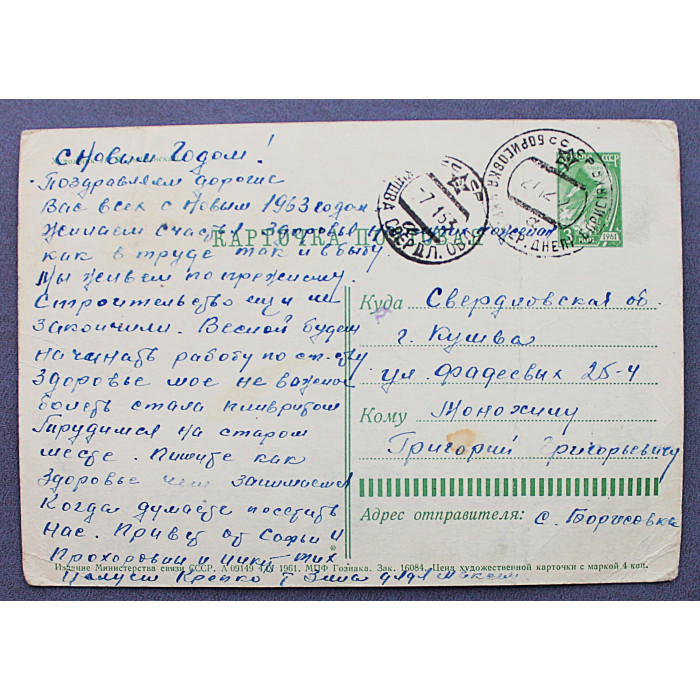 С Новым Годом!
Поздравляем дорогие
Вас всех с Новым 1963 годом
Желаем счастья здоровья и
как в труде так и в быту
Мы живем по прежнему.
Строительство еще не
закончили. Весной будем
начинать работу по ст-тву
Здоровье мое не важное
болеть стала плевритом
Трудимся на старом
месте. Пишите как
здоровье чем занимаетесь
Когда думаете посетить
нас. Привет от Софьи и
Прохоровны и
Целуем Крепко т дядя
КАРТОЧКА ПОЧТОВАЯ
КУШВА СВЕРДЛ. ОБЛ.
БОРИСОВКА
СССР
1961
Куда Свердловская об.
г. Кушва
ул. Фадеевых 25-4
Кому Моножилу
Григорий Григорьевичу
Адрес отправителя: с. Борисовка
Издание Министерства связи СССР. А 09149 1961. МПФ Гознака. Зак. 16084. Цена художественной карточки с маркой 4 коп.